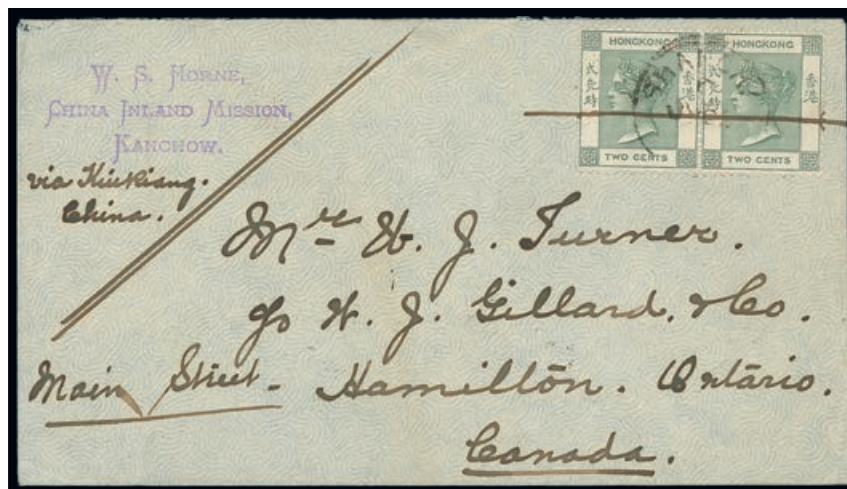 W. S. HORNE,
CHINA INLAND MISSION,
KANCHOW.
via Kiukiang.
China.
HONGKONG
香港
弍先時
TWO CENTS
HONGKONG
香港
弍先時
TWO CENTS
Mr H. J. Turner.
c/o H. J. Gillard. & Co.
Main Street - Hamilton. Ontario.
Canada.